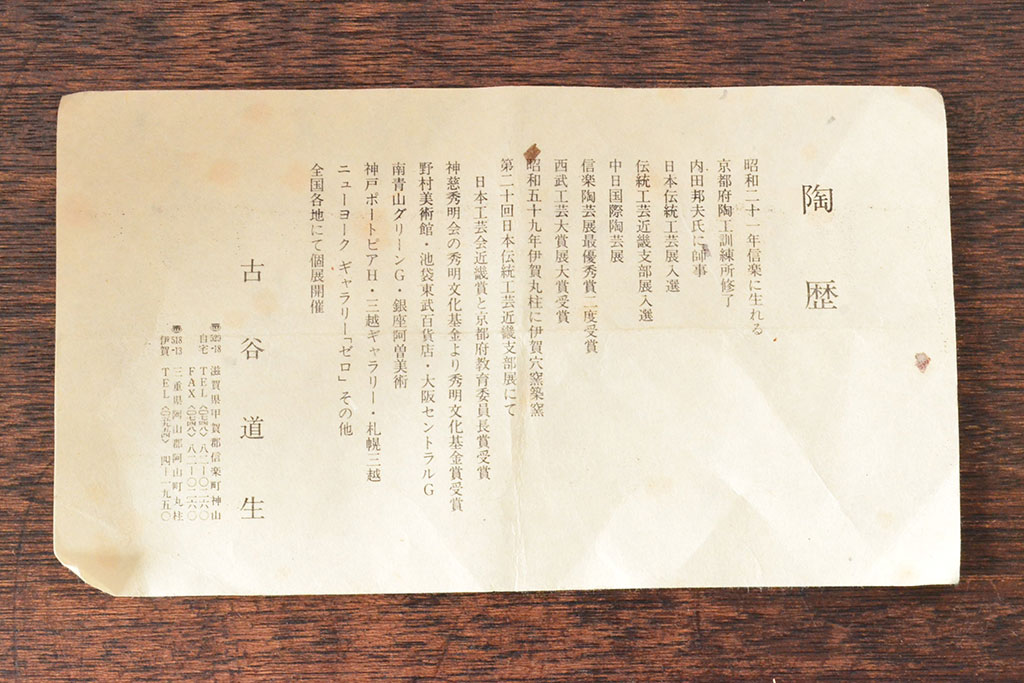 陶歴
昭和二十一年信楽に生れる
京都府陶工訓練所修了
内田邦夫氏に師事
日本伝統工芸展入選
伝統工芸近畿支部展入選
中日国際陶芸展
信楽陶芸展最優秀賞二度受賞
西武工芸大賞展大賞受賞
昭和五十九年伊賀丸柱に伊賀穴窯築窯
第二十回日本伝統工芸近畿支部展にて
日本工芸会近畿賞と京都府教育委員長賞受賞
神慈秀明会の秀明文化基金より秀明文化基金賞受賞
野村美術館・池袋東武百貨店・大阪セントラルG
南青山グリーンG・銀座阿曽美術
神戸ポートピアH・三越ギャラリー・札幌三越
ニューヨーク ギャラリー「ゼロ」その他
全国各地にて個展開催
古谷道生
〠529-18 滋賀県甲賀郡信楽町神山
自宅 TEL〈〇七四八〉八二-〇二六〇
FAX〈〇七四八〉八二-〇二六〇
〠518-13 三重県阿山郡阿山町丸柱
伊賀 TEL〈〇五九五〉四四-一九五〇